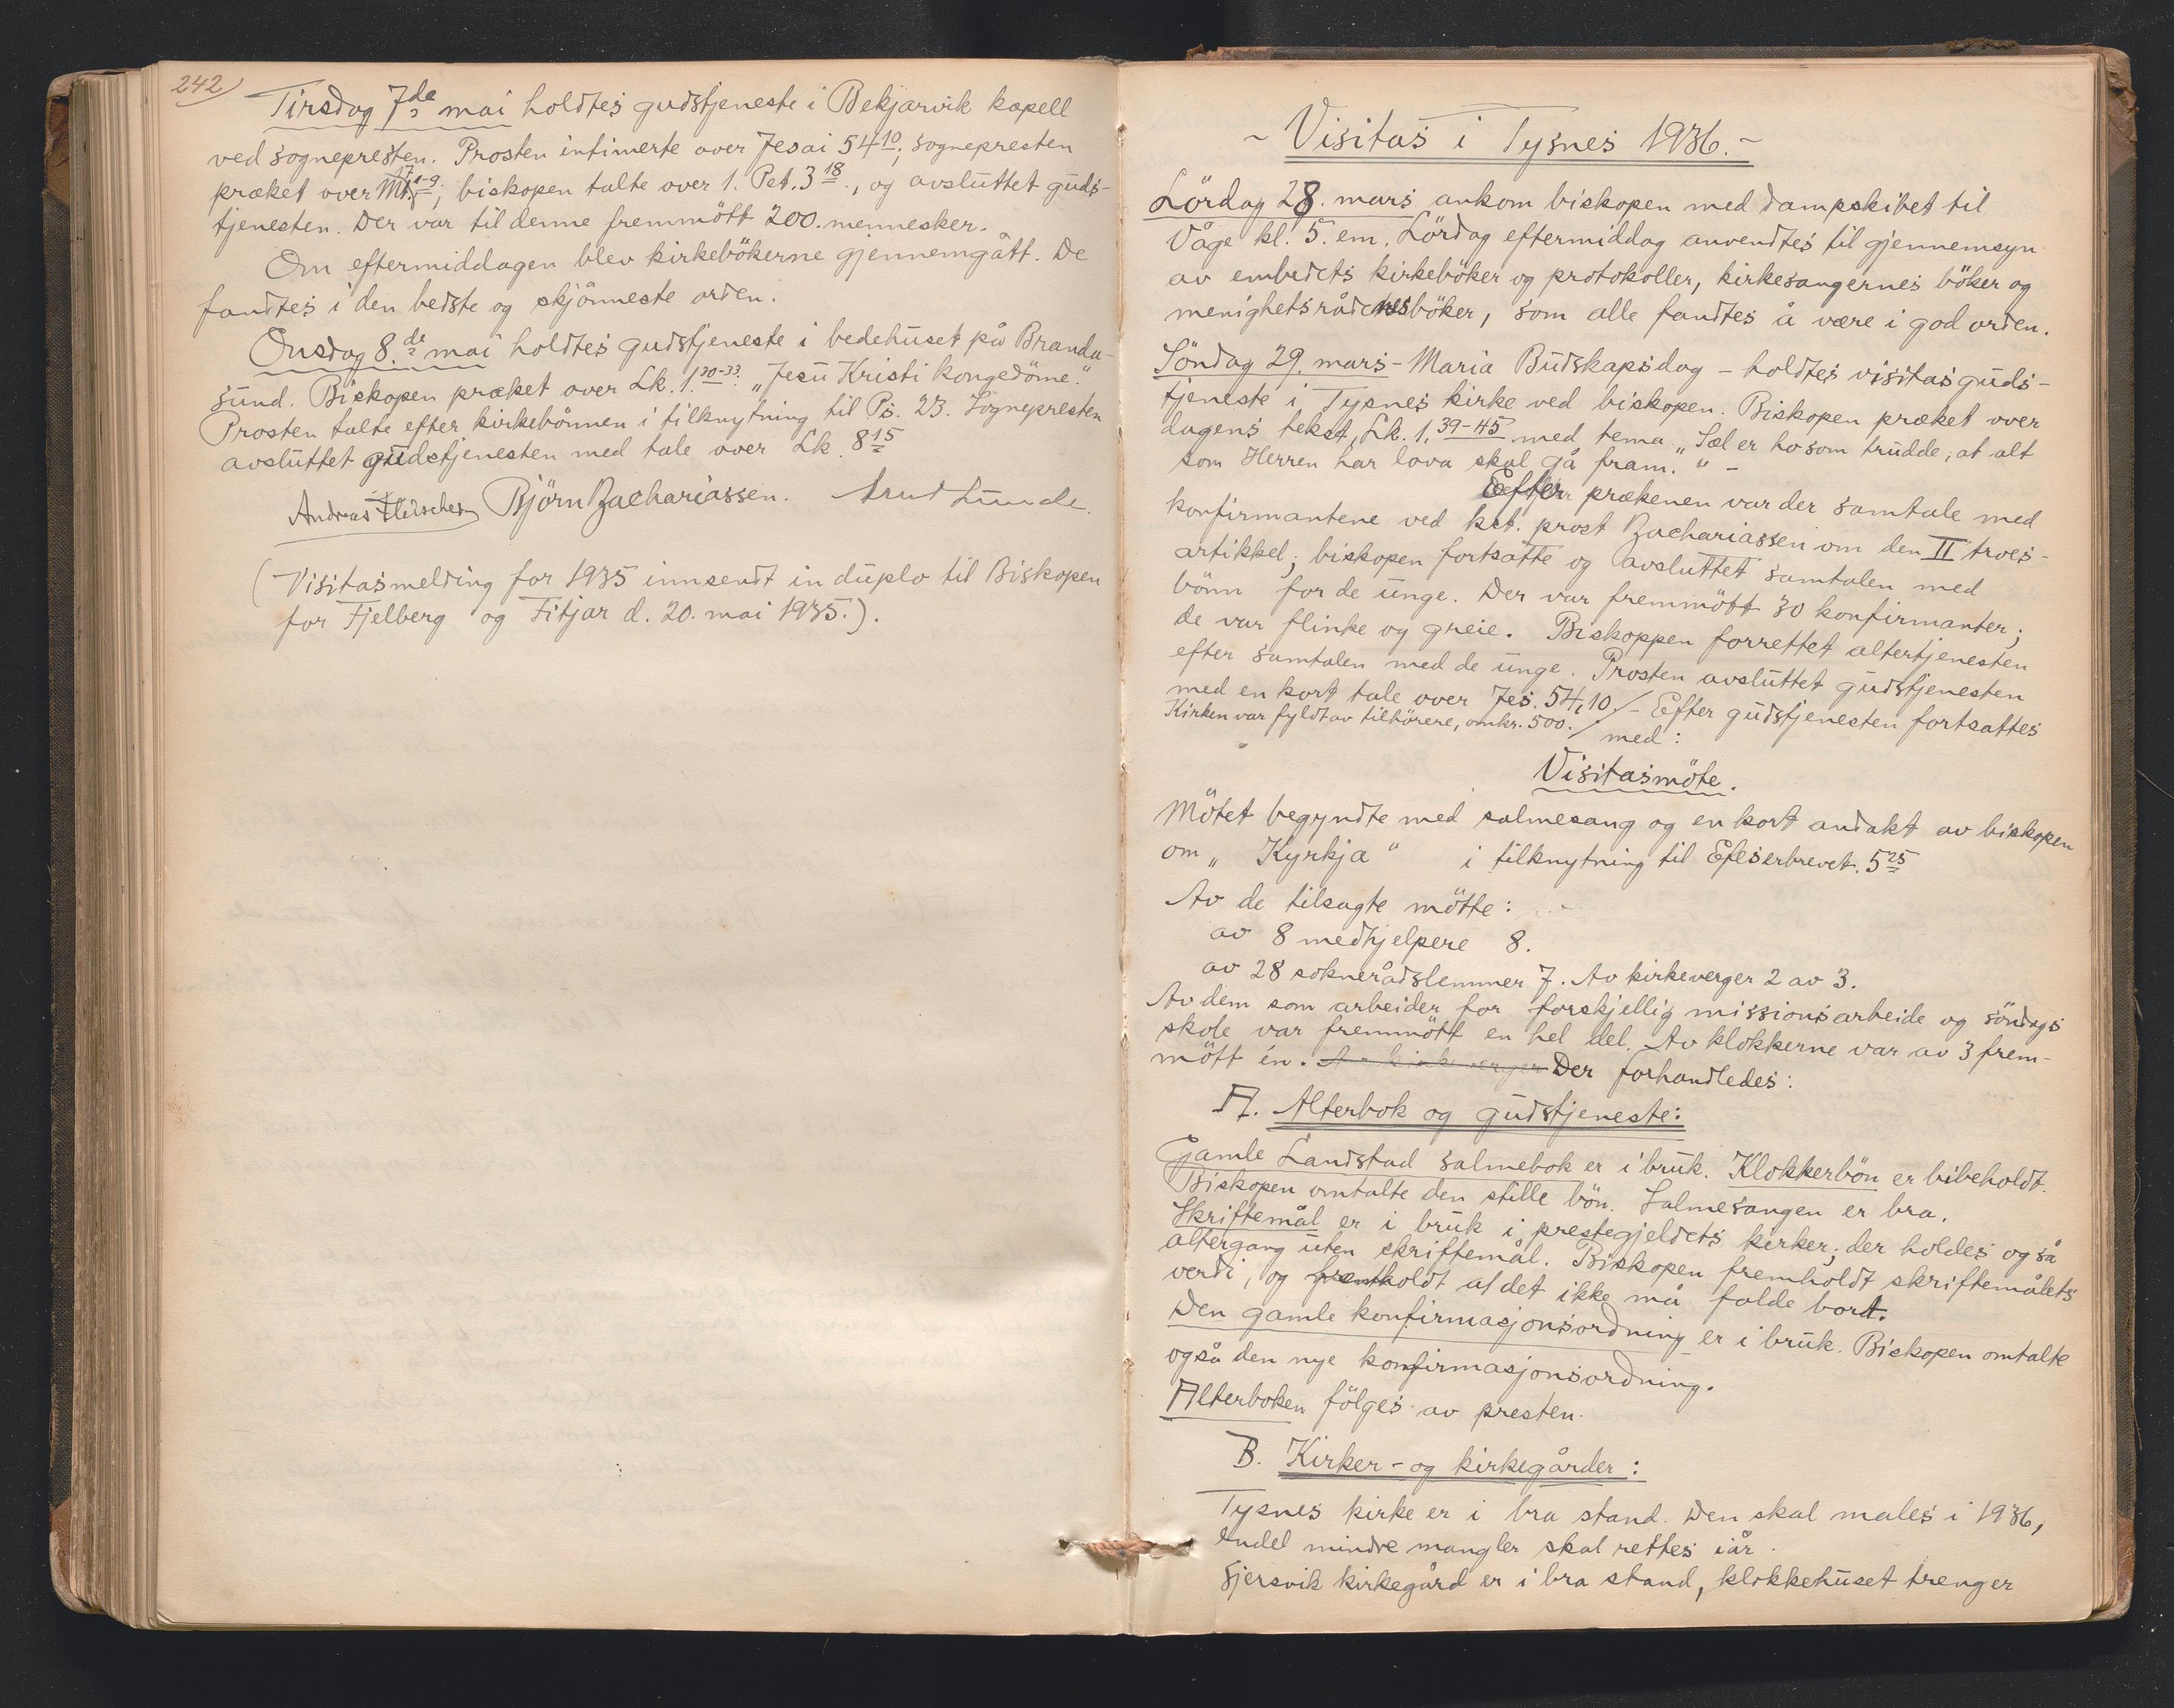 242
Tirsdag 7de mai holdtes gudstjeneste i Bekjarvik kapell
ved sognepresten. Prosten intimerte over Jesai 54 10; sognepresten
præket over Mt. 17 1-9; biskopen talte over 1. Pet. 3 18., og avsluttet guds-
tjenesten. Der var til denne fremmött 200. mennesker.
Om eftermiddagen blev kirkebökerne gjennemgått. De
fandtes i den bedste og skjönneste orden.
Onsdag 8.de mai holdtes gudstjeneste i bedehuset på Branda-
sund. Biskopen præket over Lk. 1. 30-33: „Jesu Kristi kongedöme."
Prosten talte efter kirkebönnen i tilknytning til Ps. 23. Sognepresten
avsluttet gudstjenesten med tale over Lk. 8 15
Andreas Fleischer Björn Zachariassen. Arnt Lunde.
(Visitasmelding for 1935 innsendt in duplo til Biskopen
for Fjelberg og Fitjar d. 20. mai 1935.).
- Visitas i Tysnes 1936. -
Lördag 28. mars ankom biskopen med dampskibet til
Våge kl. 5. em. Lördag eftermiddag anvendtes til gjennemsyn
av embedets kirkeböker og protokoller, kirkesangernes böker og
menighetsrådenes böker, som alle fandtes å være i god orden.
Söndag 29. mars - Maria Budskapsdag - holdtes visitasguds-
tjeneste i Tysnes kirke ved biskopen. Biskopen præket over
dagens tekst, Lk. 1, 39-45 med tema „Sæl er ho som trudde, at alt
som Herren har lova skal gå fram." -
Efter prækenen var der samtale med
konfirmantene ved kst. prost Zachariassen om den II troes-
artikkel; biskopen fortsatte og avsluttet samtalen med
bönn for de unge. Der var fremmött 30 konfirmanter;
de var flinke og greie. Biskoppen forrettet altertjenesten
efter samtalen med de unge. Prosten avsluttet gudstjenesten
med en kort tale over Jes. 54,10. / - Efter gudstjenesten fortsattes
Kirken var fyldt av tilhörere, omkr. 500. / med:
Visitasmöte.
Mötet begyndte med salmesang og en kort andakt av biskopen
om „Kyrkja" i tilknytning til Efeserbrevet. 5 25
Av de tilsagte mötte:
av 8 medhjelpere 8.
av 28 soknerådslemmer 7. Av kirkeverger 2 av 3.
Av dem som arbeider for forskjellig missionsarbeide og söndags
skole var fremmött en hel del. Av klokkerne var av 3 frem-
mött én. Av kirkeverger Der forhandledes:
A. Alterbok og gudstjeneste:
Gamle Landstad salmebok er i bruk. Klokkerbön er bibeholdt.
Biskopen omtalte den stille bön. Salmesangen er bra.
Skriftemål er i bruk i prestegjeldets kirker; der holdes også
altergang uten skriftemål. Biskopen fremholdt skriftemålets
verdi, og fremholdt at det ikke må falde bort.
Den gamle konfirmasjonsordning er i bruk. Biskopen omtalte
også den nye konfirmasjonsordning.
Alterboken fölges av presten.
B. Kirker - og kirkegårder:
Tysnes kirke er i bra stand. Den skal males i 1936,
endel mindre mangler skal rettes iår.
Gjersvik kirkegård er i bra stand, klokkehuset trenger